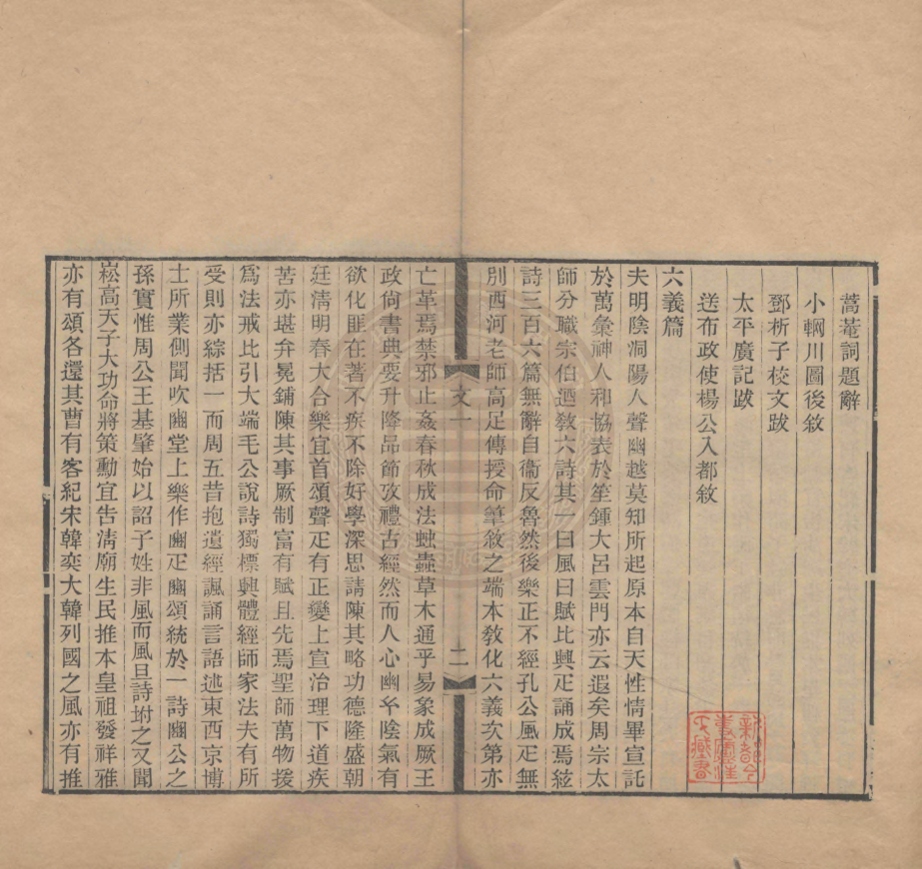 蒿菴詞題辭
小輞川圖後敘
鄧析子校文跋
太平廣記跋
送布政使楊公入都敘
六義篇
夫明陰洞陽人聲幽越莫知所起原本自天性情畢宣託
於萬彙神人和協表於笙鍾大呂雲門亦云遐矣周宗太
師分職宗伯迺敎六詩其一曰風曰賦比興疋誦成焉絃
詩三百六篇無辭自衞反魯然後樂正不經孔公風疋無
別西河老師高足傳授命筆敘之端本敎化六義次第亦
文一
二
亡革焉禁邪止姦春秋成法蚰蟲草木通乎易象成厥王
政尙書典要升降品節攷禮古經然而人心幽兮陰氣有
欲化匪在著不疾不除好學深思請陳其略功德隆盛朝
廷淸明春大合樂宜首頌聲疋有正變上宣治理下道疾
苦亦堪弁冕鋪陳其事厥制富有賦且先焉聖師萬物援
爲法戒比引大端毛公說詩獨標興體經師家法夫有所
受則亦綜括一而周五昔抱遺經諷誦言語述東西京博
士所業側聞吹豳堂上樂作豳疋豳頌統於一詩豳公之
孫實惟周公王基肇始以詔子姓非風而風旦詩坿之又聞
崧高天子大功命將策勳宜告淸廟生民推本皇祖發祥雅
亦有頌各還其曹有客紀宋韓奕大韓列國之風亦有推